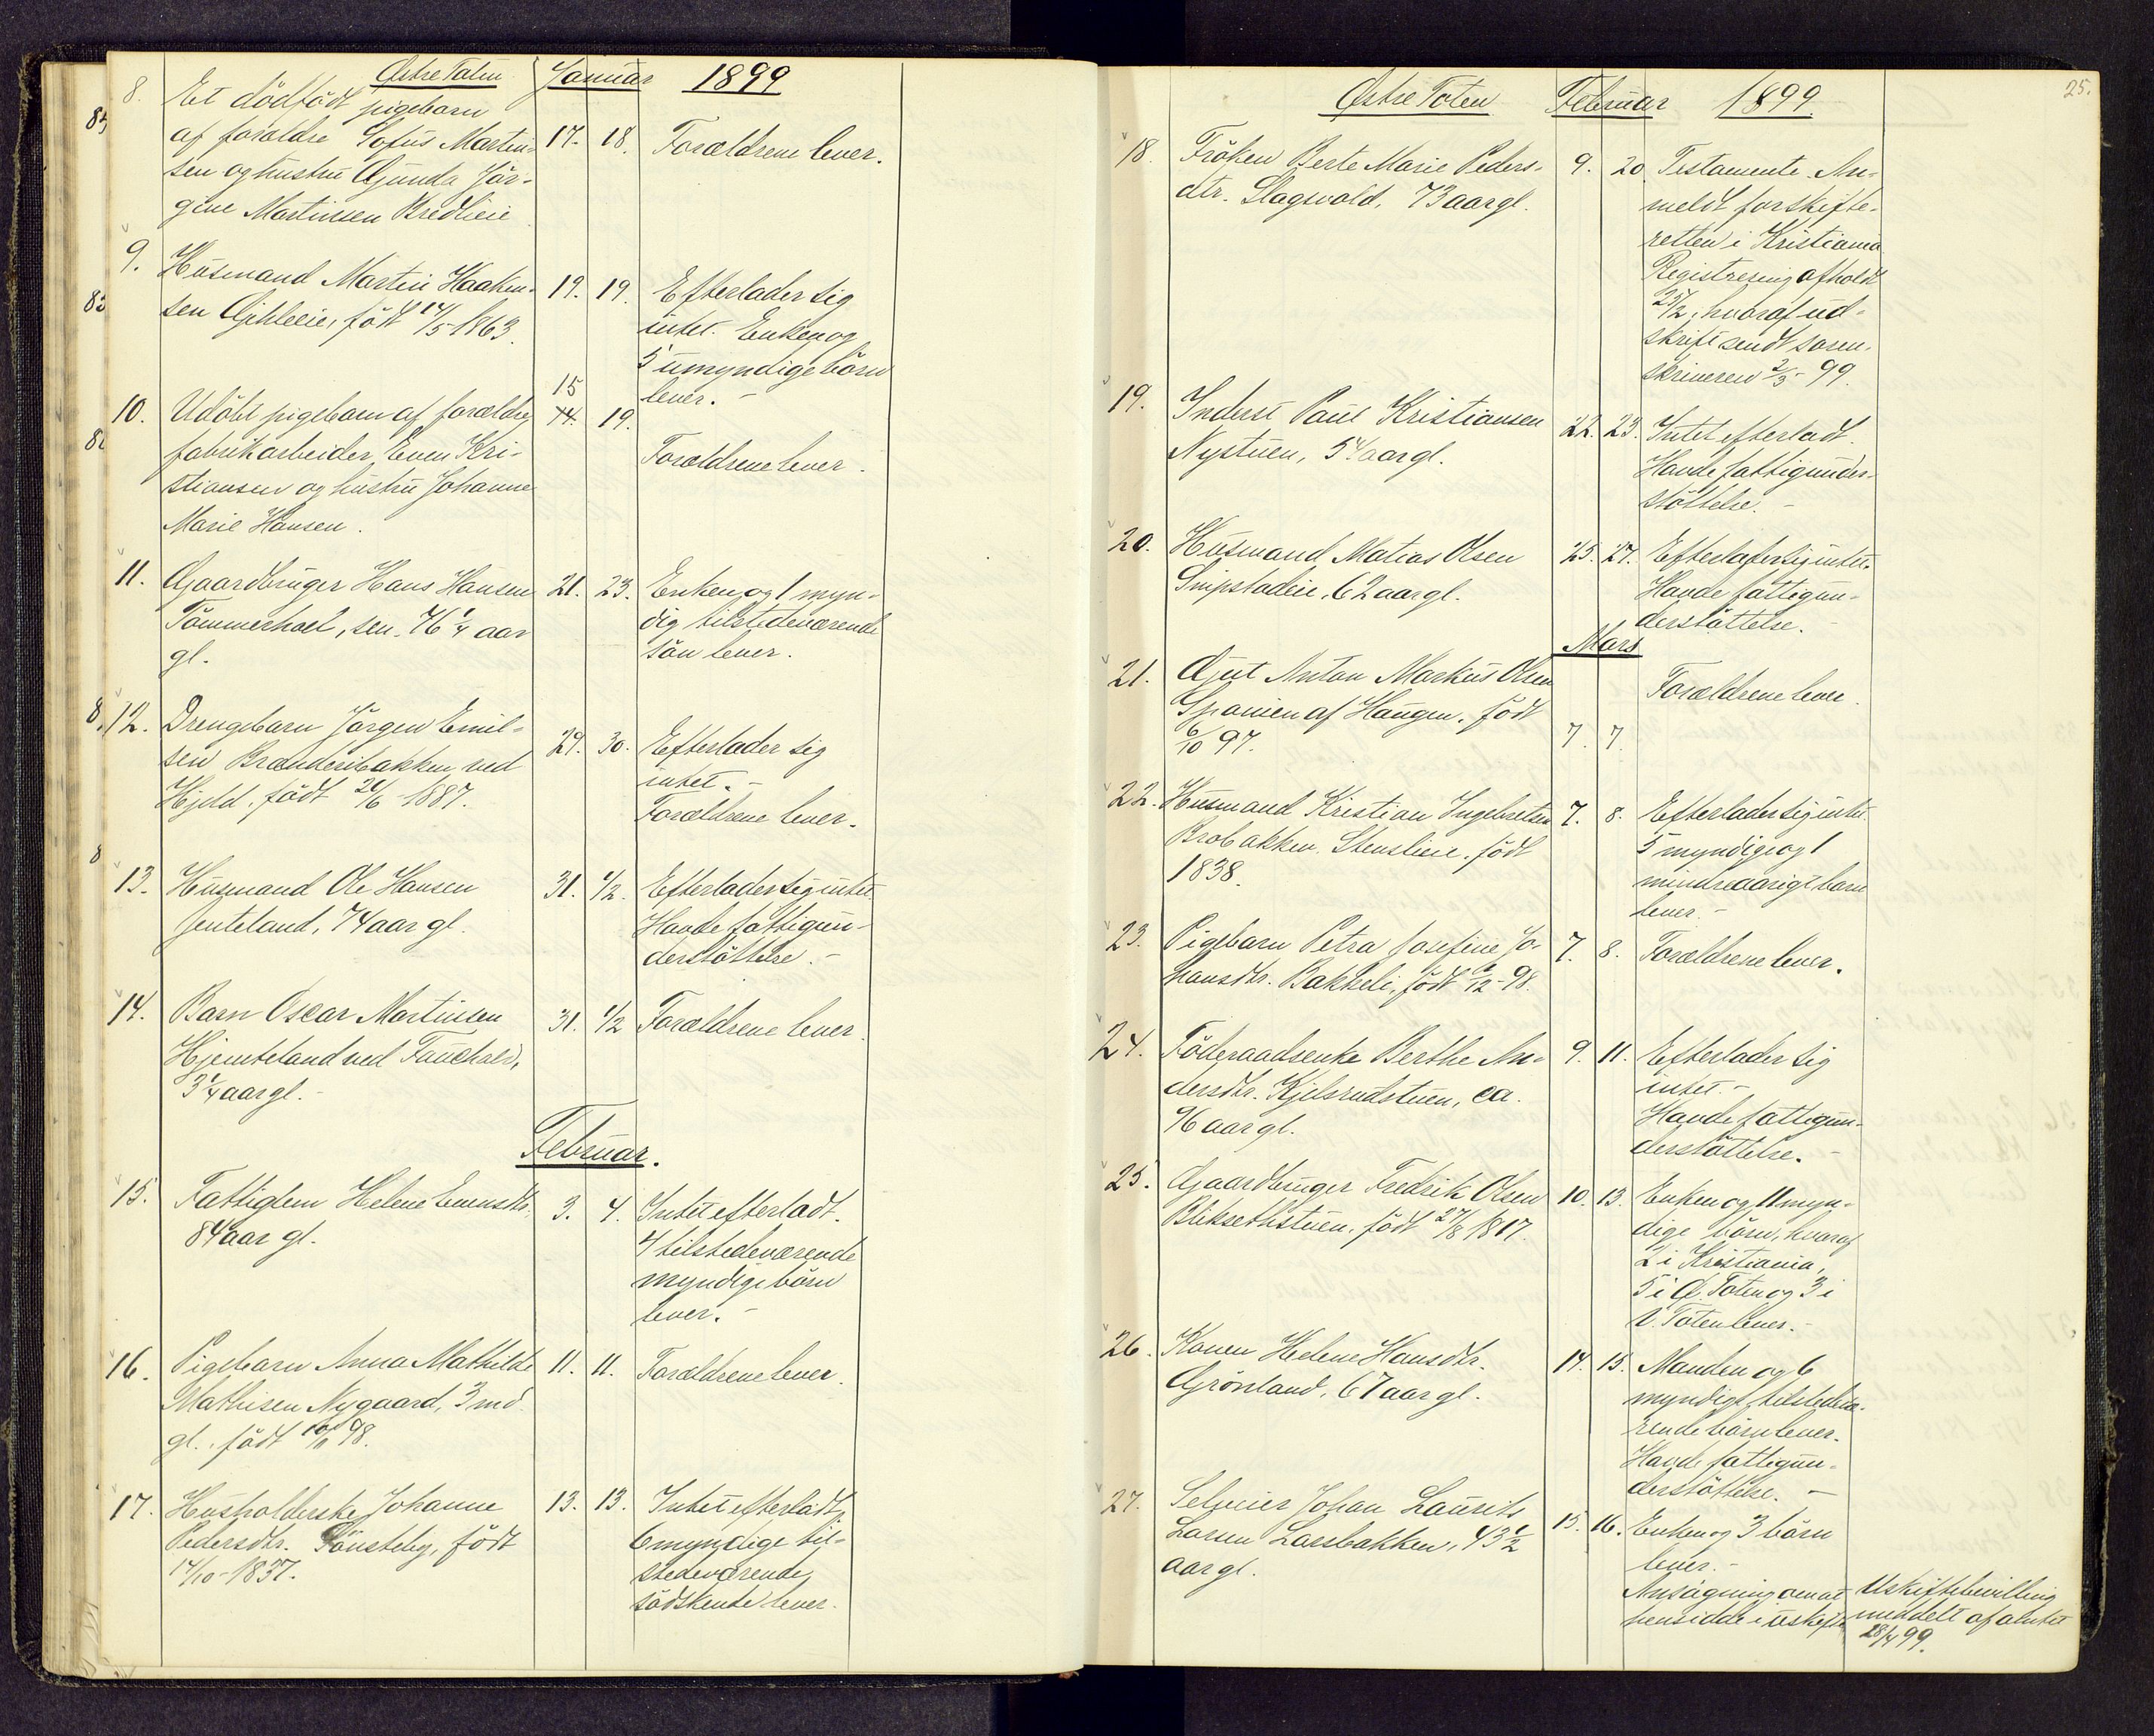 Østre Toten Januar 1899
8. Et dödfödt pigebarn
af forældre Sofus Martin-
sen og hustru Gunda Jör-
gine Martinsen Bredlieie
17. 18. Forældrene lever.
9. Husmand Martin Haaken-
sen födt 14/5 1863.
19. 19. Efterlader sig
intet. Enken og
5 umyndige börn
lever. -
10. Udöbt pigebarn af forældre
fabrikarbeider Even Kri-
stiansen og hustru Johanne
Marie Hansen.
15
14. 19.
Forældrene lever.
11. Gaardbruger Hans Hansen
Tömmerhoel, sen. 76 1/4 aar
gl.
21. 23. Enken og 1 myn-
dig tilstedeværende
sön lever.
12. Drengebarn Jörgen Emil-
sen Brænderibakken ved
Hjeld, födt 20/6 1887.
29. 30. Efterlader sig
intet. -
Forældrene lever.
13. Husmand Ole Hansen
Jenteland, 74 aar gl.
31. 1/2. Efterlader sig intet.
Havde fattigun-
derstöttelse. -
14. Barn Oscar Martinsen
Hjemteland ved Fauchald,
3 1/4 aar gl. -
31. 1/2 Forældrene lever.
Februar.
15. Fattiglem Helene Evensdtr.
84 aar gl.
3. 4. Intet efterladt.
4 tilstedeværende
myndige börn
lever. -
16. Pigebarn Anna Mathilde
Mathisen Nygaard, 3 md.
gl., födt 10/11 98.
11. 11. Forældrene lever.
17. Husholderske Johanne
Pedersdtr. Pönsteby, födt
14/10 - 1837.
13. 13. Intet efterladt,
6 myndige til-
stedeværende
södskende lever.
25.
Østre Toten Februar 1899.
18. Fröken Berte Marie Peders-
dtr. Slagsvold, 73 aar gl.
9. 20. Testamente. An-
meldt for skifte-
retten i Kristiania
Registrering afholdt
25/2, hvoraf ud-
skrift sendt soren-
skriveren 2/3 - 99.
19. Inderst Paul Kristiansen
Nystuen, 54 aar gl.
22. 23. Intet efterladt.
Havde fattigunder-
stöttelse. -
20. Husmand Matias Olsen
Snipstadeie, 62 aar gl.
25. 27. Efterlader sig intet.
Havde fattigun-
derstöttelse. -
Mars
21. Gut Anton Markus Olsen
Spanien af Haugen, födt
6/10 97.
7. 7.
Forældrene lever.
22. Husmand Kristian Ingebretsen
Brobakken, Stenslieie, födt
1838.
7. 8. Efterlader sig intet.
5 myndige og 1
mindreaarigt barn
lever. -
23. Pigebarn Petra Josefine Jo-
hansdtr. Bakkeli, födt 6/12 - 98.
7. 8. Forældrene lever.
24. Föderaadsenke Berthe An-
dersdtr. Kjelsrudstuen, ca.
96 aar gl.
9. 11. Efterlader sig
intet. -
Havde fattigun-
derstöttelse. -
25. Gaardbruger Fredrik Olsen
Bliksethstuen, födt 27/8 1817.
10. 13. Enken og 11 myn-
dige börn, hvoraf
2 i Kristiania,
5 i Ø. Toten og 3 i
V. Toten lever. -
26. Konen Helene Hansdtr.
Grönland, 67 aar gl.
14. 15. Manden og 6
myndige tilstedevæ-
rende börn lever.
Havde fattigun-
derstöttelse. -
27. Selveier Johan Laurits
Larsen Larsbakken, 43 1/2
aar gl.
15. 16. Enken og 3 börn
lever. -
Ansögning om at
hensidde i uskifte
Uskiftebevilling
meddelt af amtet
28/4 99.